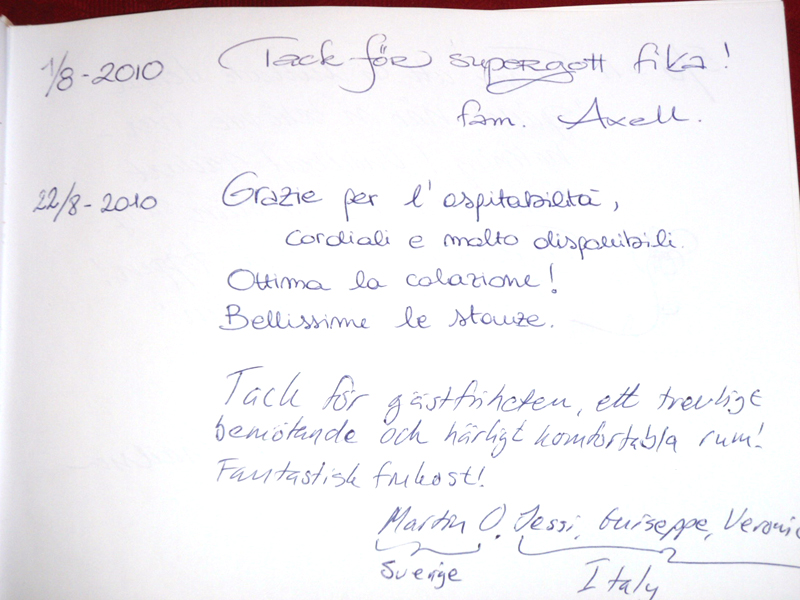 1/8-2010 Tack för supergott fika!
fam. Axell.
22/8-2010 Grazie per l'ospitabilità,
cordiali e molto disponibili.
Ottima la colazione!
Bellissime le stanze.
Tack för gästfriheten, ett trevligt
bemötande och härligt komfortabla rum!
Fantastisk frukost!
Martin O. Jessi, Guiseppe, Veronic
Sverige Italy